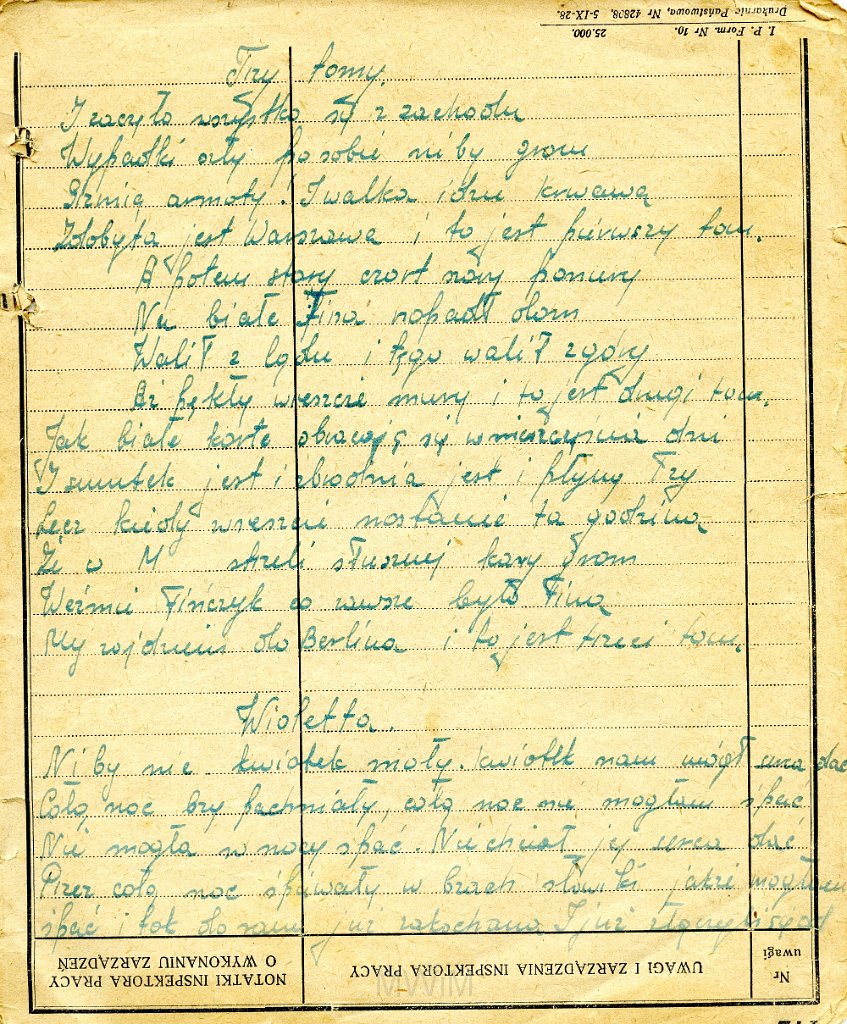 I. P. Form. Nr 10. 25.000.
Drukarnia Państwowa, Nr 42808, 5-IX-28.
Trzy tomy.
I zaczęło wszystko się z zachodu
Wypadki szły po sobie niby grom
Grzmią armoty! I walka idzie krwawą
Zdobyta jest Warszawa i to jest pierwszy tom.
A potem stary czort ponury
Na białe Fina napadł dom
Walił z lądu i tęgo walił z góry
Aż pękły wreszcie mury i to jest drugi tom.
Jak białe karte obracają się dni
I smutek jest i zbrodnia jest i płyną łzy
Lecz kiedy wreszcie nastanie ta godzina
Że w M strzeli słusznej kary grom
Weźmie Fińczyk co zawsze było Fina
My zajdziem do Berlina i to jest trzeci tom.
Wioletta.
Niby nie kwiatek mały. kwiatek nam mógł dać
Całą noc bzy pachniały, całą noc nie mogłam spać
Nie mogła w nocy spać. Nie chciał jej serca dać
Przez całą noc śpiewały w bzach słowiki jakże mogłam
spać i tak do rana już zakochana I już
Nr uwagi
UWAGI I ZARZĄDZENIA INSPEKTORA PRACY
NOTATKI INSPEKTORA PRACY O WYKONANIU ZARZĄDZEŃ
MWIM